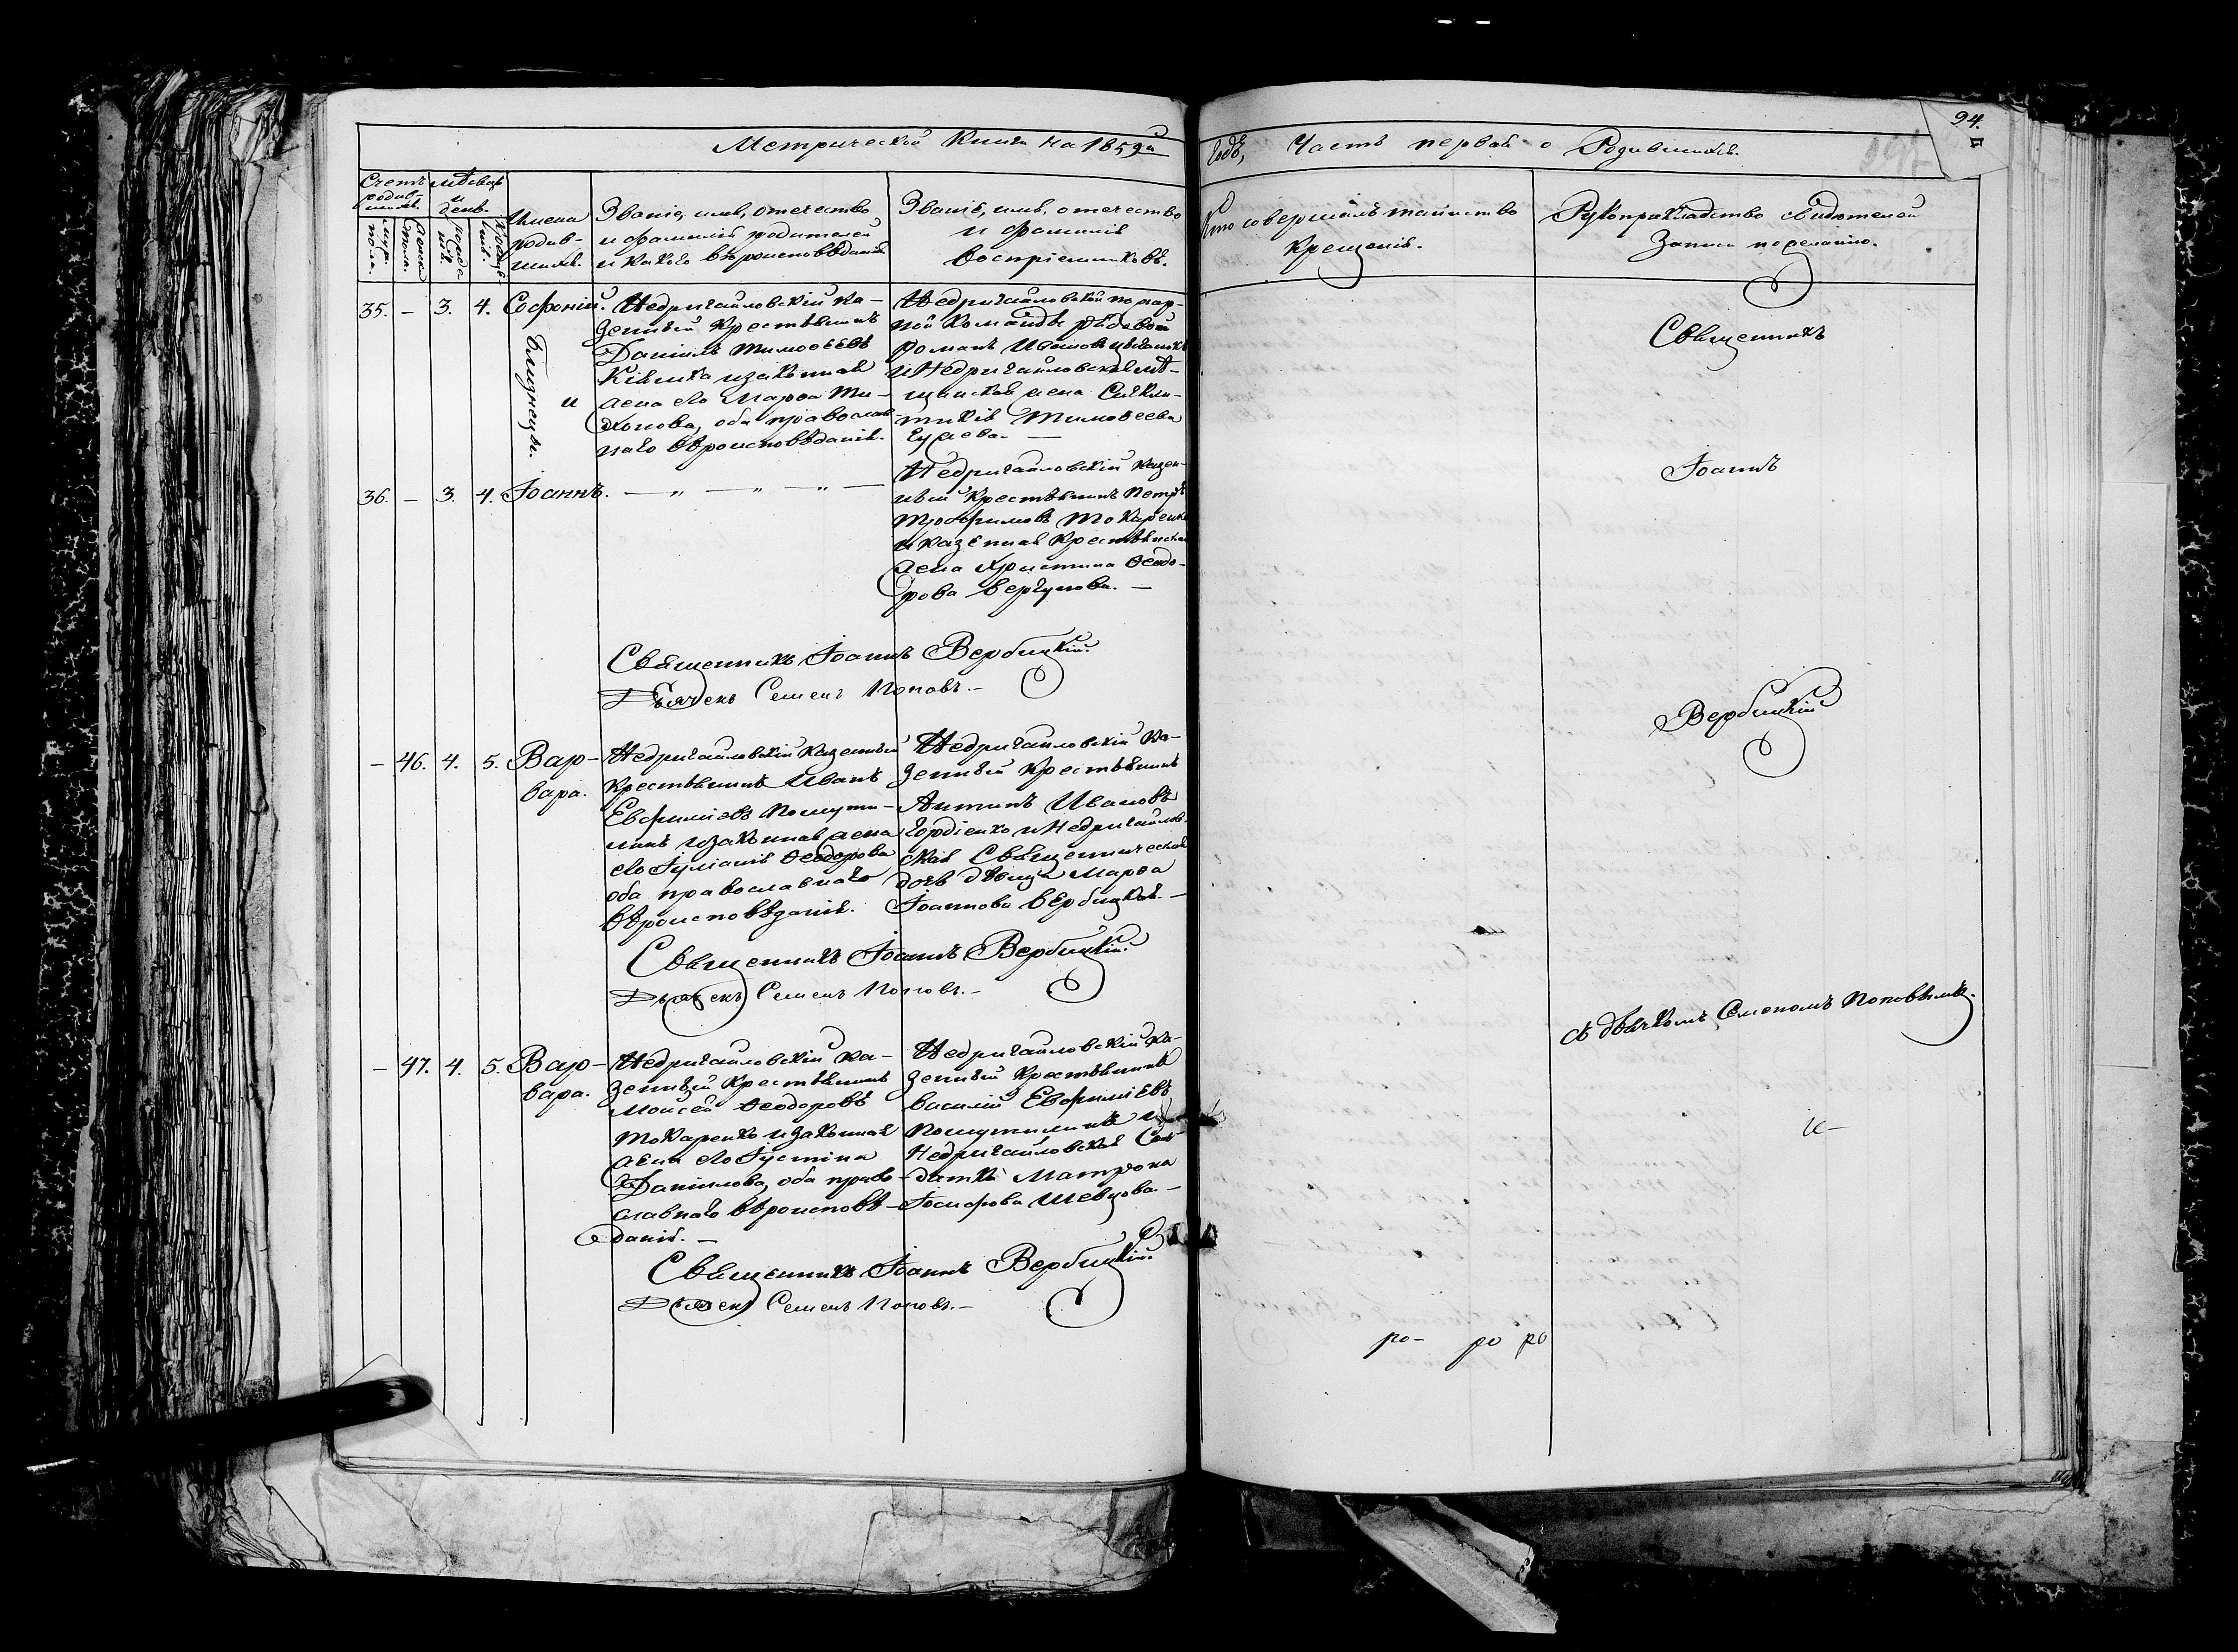 Метрической Книги на 1859й
Годъ, Часть первая о Родившихся.
94.
Счетъ родив-
шихся.
Муж. пола.
Женск. пола.
Мѣсяцъ и день.
рожде-
нія.
креще-
нія.
Имена
родив-
шихся.
Званіе, имя, отечество,
и фамилія родителей
и какого вѣроисповѣданія
Званіе, имя, отечество
и фамилія
воспріемниковъ.
Кто совершалъ таинство
крещенія.
Рукоприкладство свидѣтелей
записи по желанію.
35. – 3. 4. Софоній.
Близнецы.
и
Недригайловскій ка-
зенный крестьянинъ
Даніилъ Тимоѳеевъ
и законная
жена его Марѳа Ти-
хонова, оба православ-
наго вѣроисповѣданія.
Недригайловской пожар-
ной команды рядовой
Романъ Ивановъ
и Недригайловская мѣ-
щанская жена Синкли-
тикія Тимоѳеева
36. – 3. 4. Іоаннъ. – „ – „ – „ –
Недригайловскій казен-
ный крестьянинъ Петръ
Трофимовъ Токаренко
и казенная крестьянская
жена Христина Ѳеодо-
рова Вергунова. –
Священникъ Іоаннъ Вербицкій.
Дьячекъ Семенъ Поповъ. –
– 46. 4. 5. Вар-
вара.
Недригайловскій казенный
крестьянинъ Иванъ
Евфиміевъ Пошути-
линъ и законная жена
его Іуліанія Ѳеодорова
оба православнаго
вѣроисповѣданія.
Недригайловскій ка-
зенный крестьянинъ
Антипъ Ивановъ
Гордіенко и Недригайлов-
ская Священническая
дочь дѣвица Марѳа
Іоаннова Вербицкая. –
Священникъ Іоаннъ Вербицкій.
Дьячекъ Семенъ Поповъ. –
– 47. 4. 5. Вар-
вара.
Недригайловскій ка-
зенный крестьянинъ
Моисей Ѳеодоровъ
Токаренко и законная
жена его Іустина
Даніилова, оба право-
славнаго вѣроисповѣ-
данія. –
Недригайловскій ка-
зенный крестьянинъ
Василій Евфиміевъ
Пошутилинъ и
Недригайловская Сол-
датка Матрона
Іосифова Шевцова. –
Священникъ Іоаннъ Вербицкій.
Дьячекъ Семенъ Поповъ. –
Священникъ
Іоаннъ
Вербицкій
съ дьячкомъ Семеномъ Поповымъ.
ро- ро ро